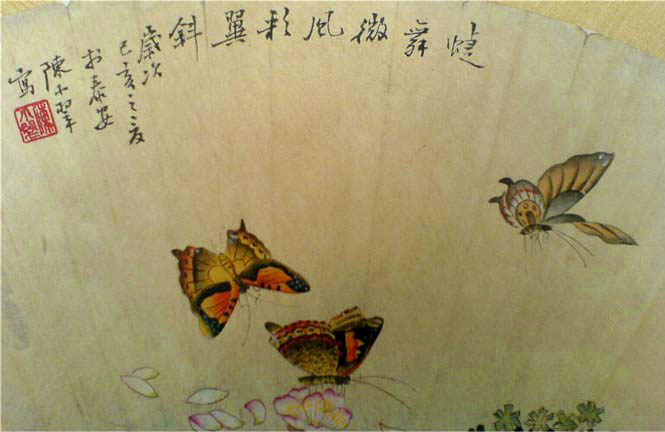 蜨舞微風彩翼斜
歲次
己亥之夏
於泰安
陳小翠
寫